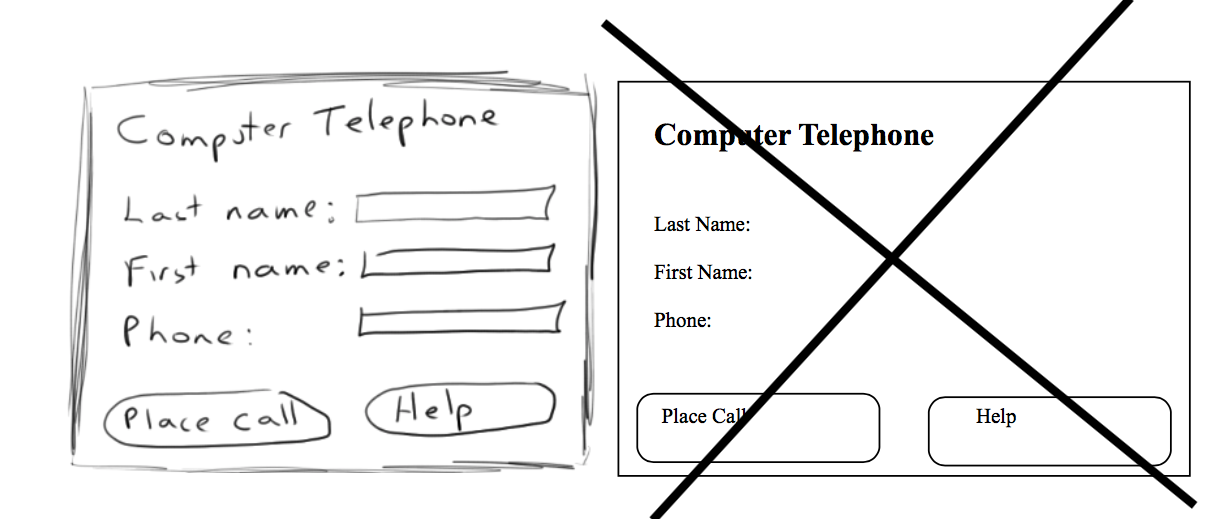 Computer Telephone
Last name:
First name:
Phone:
Place call
Help
Computer Telephone
Last Name:
First Name:
Phone:
Place Call
Help